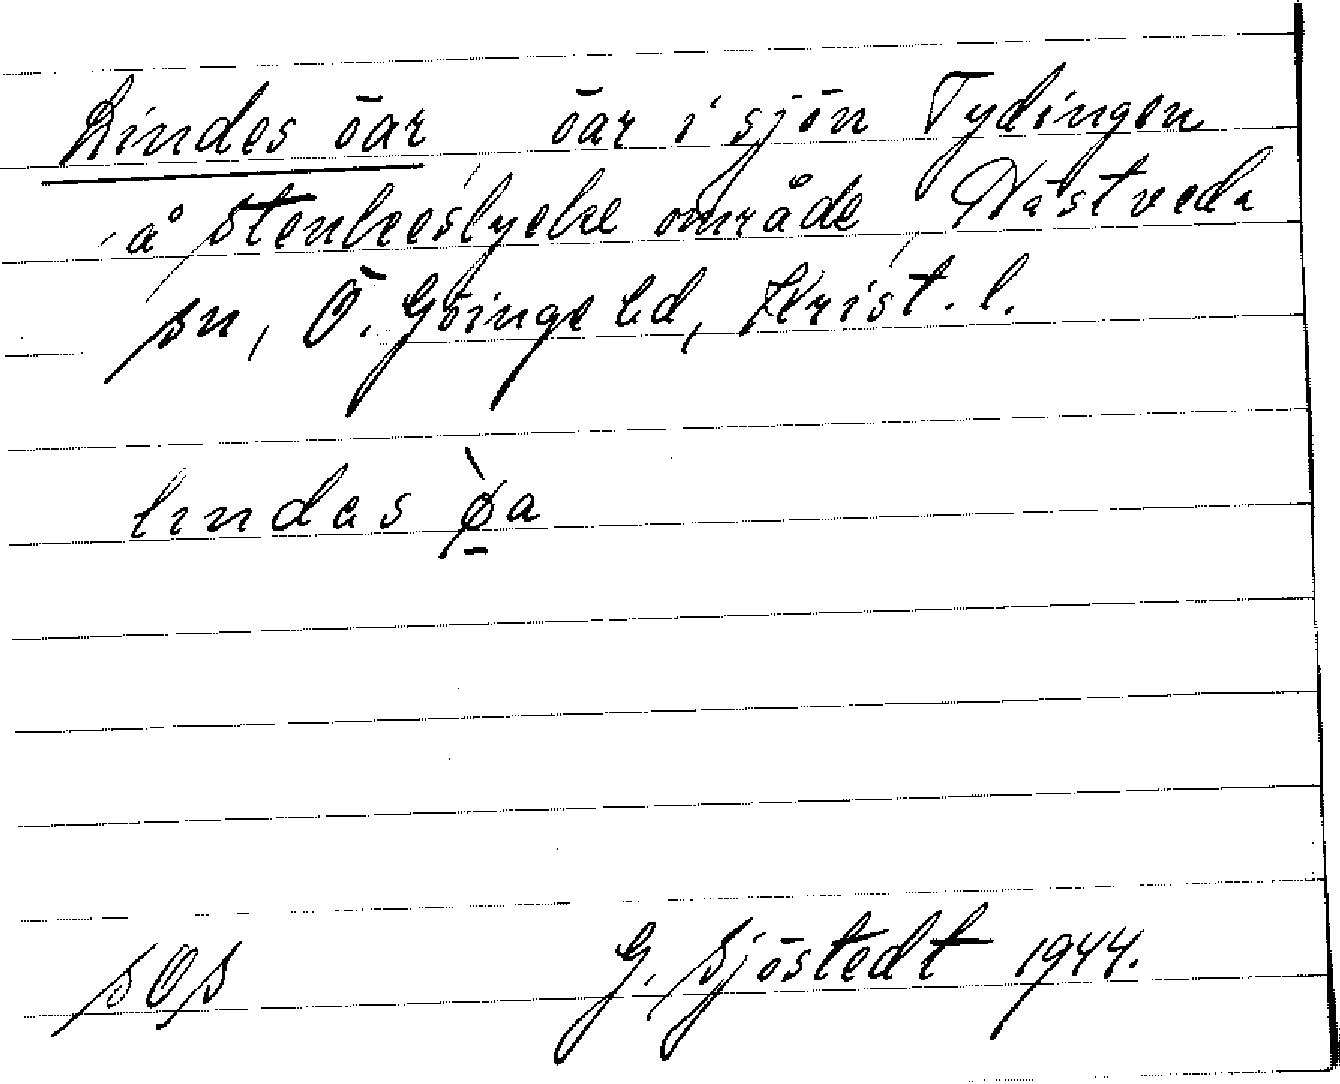 Lindes öar öar i sjön Tydingen
å Stenkeslycke område, Hästveda
sn, Ö. Göinge hd, Krist. l.
lındas ø̀a
SOS G. Sjöstedt 1944.